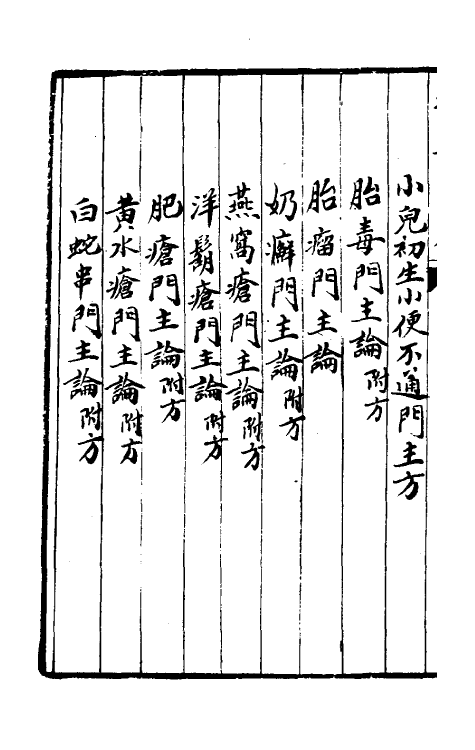 小兒初生小便不通門主方
胎毒門主論附方
胎瘤門主論
奶癬門主論附方
燕窩瘡門主論附方
洋鬍瘡門主論附方
肥瘡門主論附方
黃水瘡門主論附方
白蛇串門主論附方